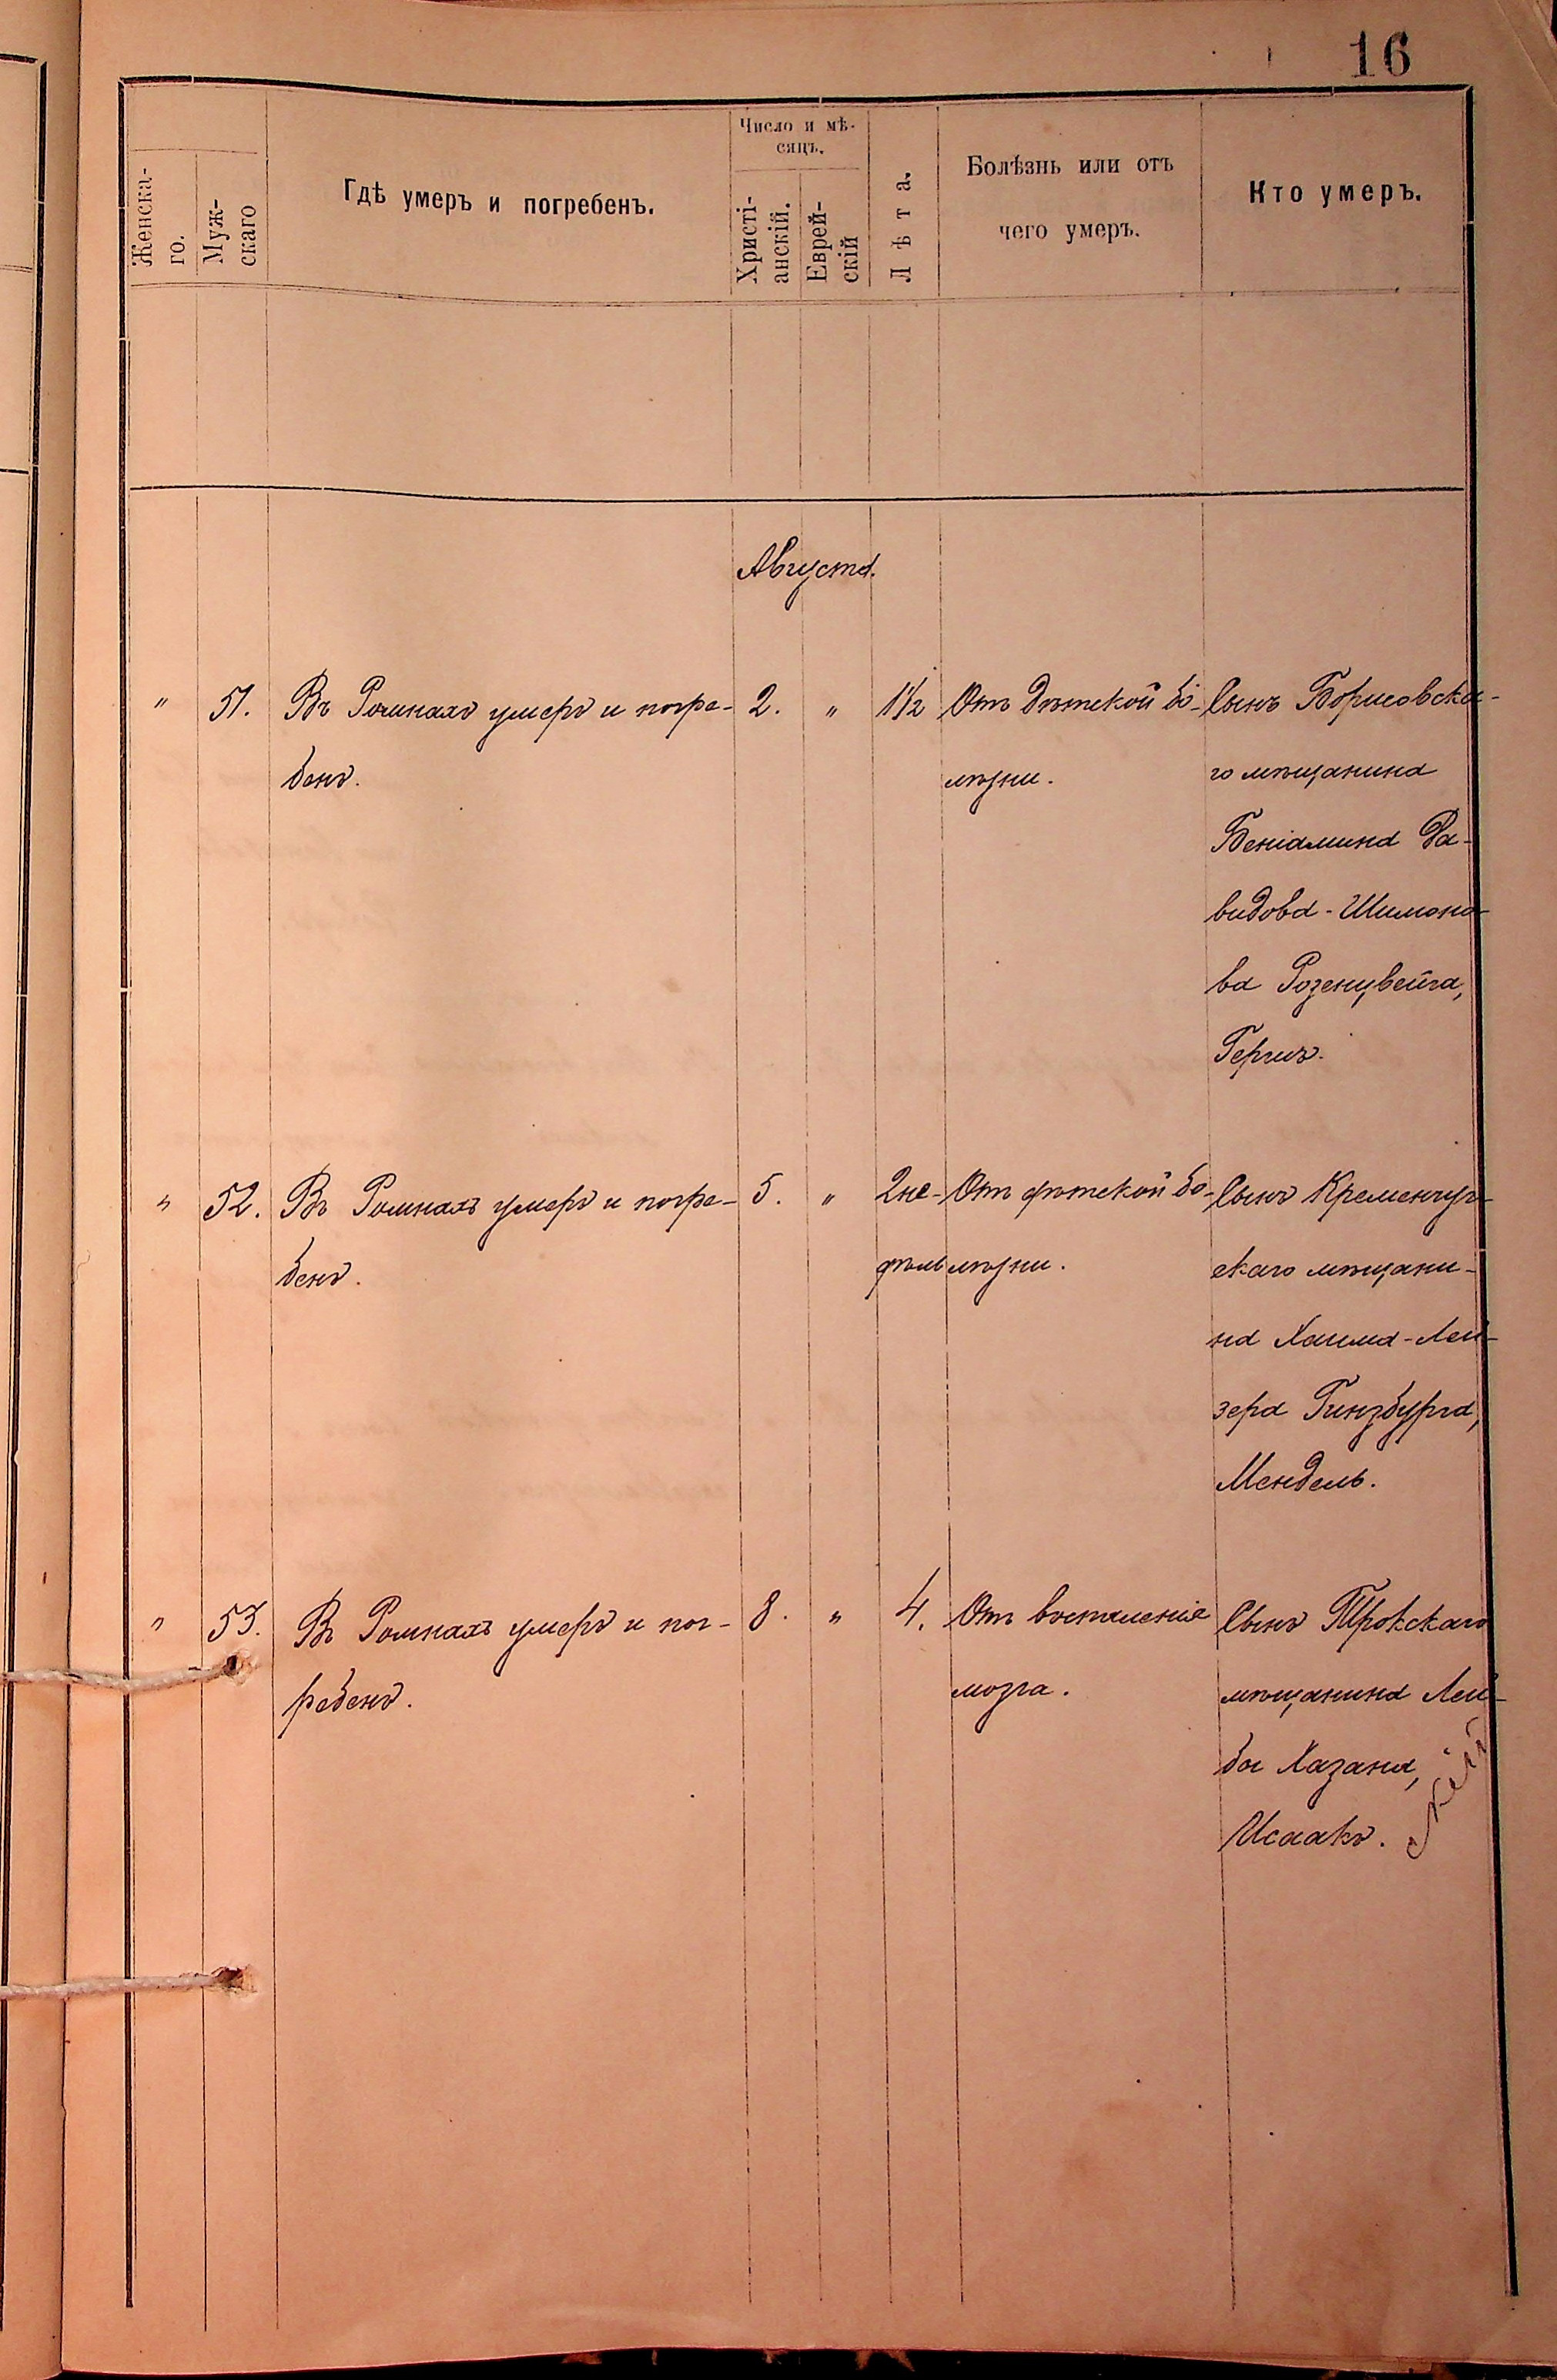 16
Женска-
го.
Муж-
скаго
Гдѣ умеръ и погребенъ.
Число и мѣ-
сяцъ.
Христі-
анскій.
Еврей-
скій
Лѣта.
Болѣзнь или отъ
чего умеръ.
Кто умеръ.
Августа.
" 51. Въ Ромнахъ умеръ и погре- 2. " 1 1/2 Отъ дѣтской бо- Сынъ Борисовска-
бенъ. лѣзни. го мѣщанина
Беніамина Да-
видова-Шимоно-
ва Розенцвейга,
Герцъ.
" 52. Въ Ромнахъ умеръ и погре- 5. " 2 не- Отъ дѣтской бо- Сынъ Кременчуг-
бенъ. дѣль лѣзни. скаго мѣщани-
на Хаима-Лей-
зера Гинзбурга,
Мендель.
" 53. Въ Ромнахъ умеръ и пог- 8. " 4. Отъ воспаленія Сынъ Трокскаго
ребенъ. мозга. мѣщанина Лей-
бы Хазана,
Исаакъ.